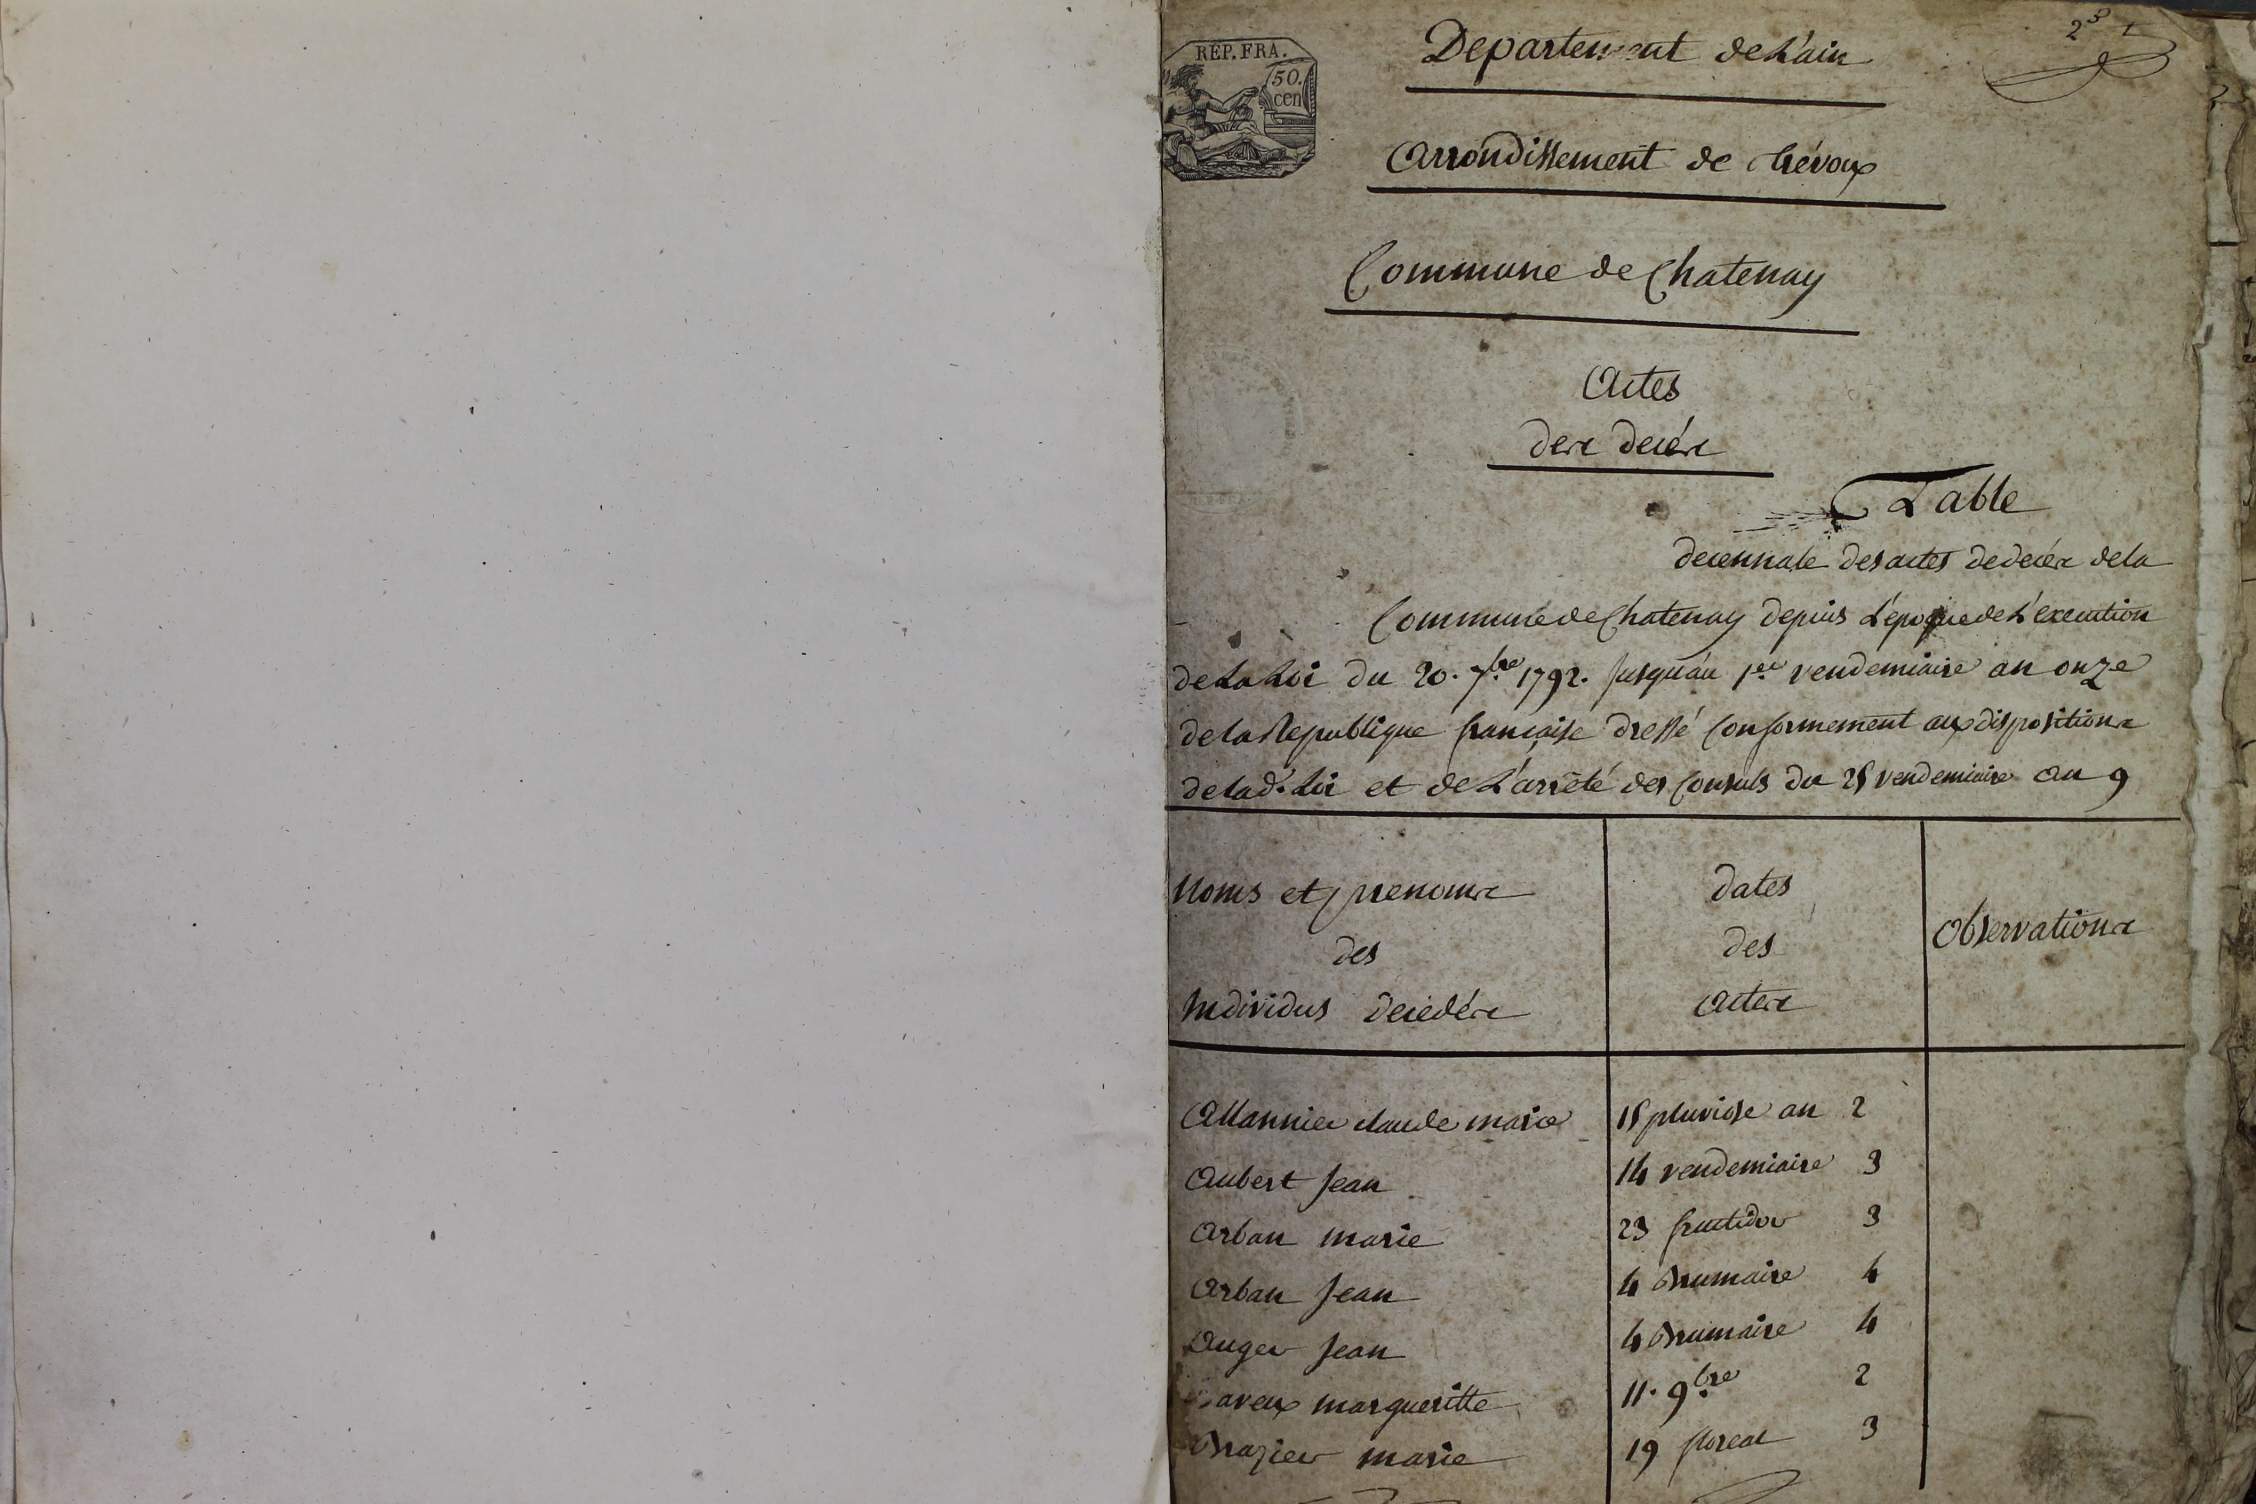 REP. FRA.
50.
cen
Departement de L'ain
Arrondissement de trévoux
Commune de Chatenay
Actes
des decés
Table
decennale des actes de decés de la
Commune de Chatenay depuis L'epoque de L'execution
de la Loi du 20. 7.bre 1792. jusqu'au 1.er vendemiaire an onze
de la Republique francaise dressé conformement aux dispositions
de lad.e Loi et de L'arrêté des Consuls du 25 vendemiaire an 9
Noms et prenoms
des
Individus decedés
dates
des
actes
Observations
Allannier claude marie 15 pluviose an 2
Aubert Jean 14 vendemiaire 3
Arban marie 23 fructidor 3
Arban Jean 4 Brumaire 4
Auger Jean 4 Brumaire 4
margueritte 11. 9.bre 2
Brazier marie 19 floreal 3